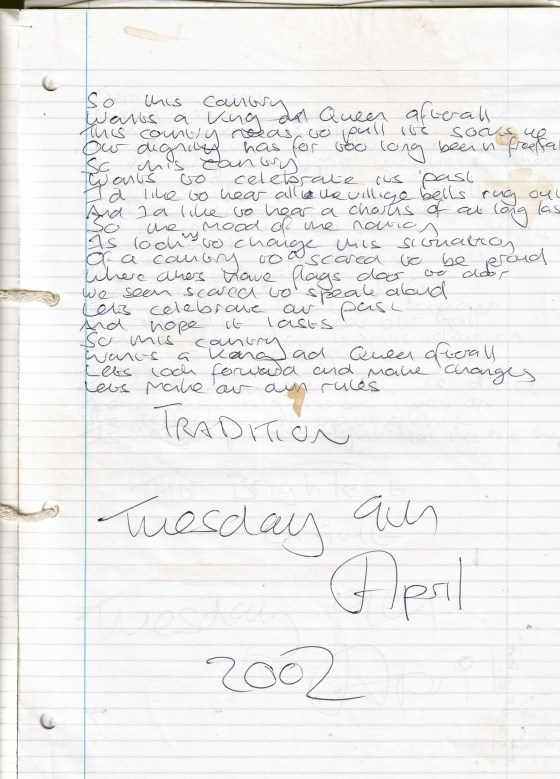 So this country
Wants a King and Queen afterall
This country needs to pull its socks up
Our dignity has for too long been in freefall
So this country
Wants to celebrate its past
I'd like to hear all the village bells ring out
And I'd like to hear a chorus of at long last
So the mood of the nation
Is looking to change this situation
Of a country too scared to be proud
Where others have flags door to door
We seem scared to speak aloud
Lets celebrate our past
And hope it lasts
So this country
Wants a King and Queen afterall
Lets look forward and make changes
Lets make our own rules
TRADITION
Tuesday 9th
April
2002